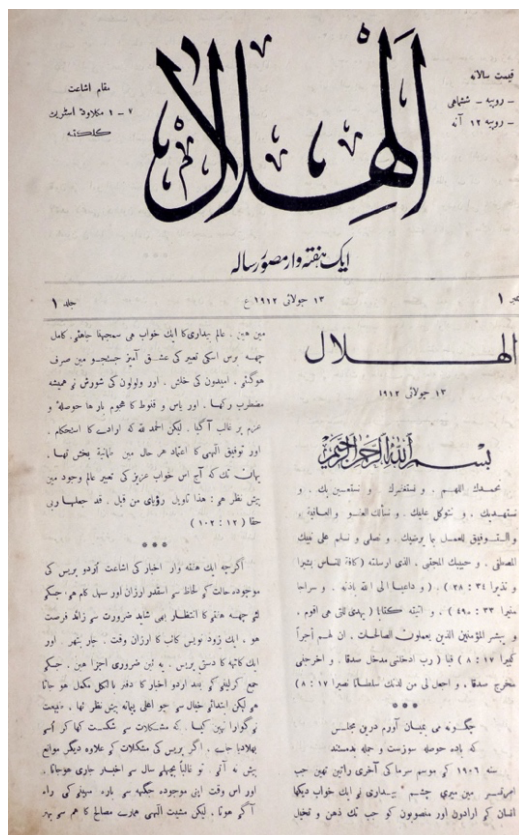 قیمت سالانہ
– روپیہ – ششماہی
– روپیہ ۱۲ آنہ
مقام اشاعت
۷ – ۱ مکلاوڈ اسٹریٹ
کلکتہ
الهلال
ایک ہفتہ وار مصور رسالہ
۱
۱۳ جولائی ۱۹۱۲ ع
جلد ۱
الهلال
۱۳ جولائی ۱۹۱۲
بسم الله الرحمن الرحيم
نحمدك اللهم ، و نستغفرك ، و نستعين بك ، و
نستهديك ، و نتوكل عليك ، و نسألك العفو و العافية ،
و التوفيق للعمل بما يرضيك ، و نصلى و نسلم على نبيك
المصطفى ، و حبيبك المجتبى ، الذى ارسلته ( كافة للناس بشيرا
و نذيرا ۳۴ : ۲۸ ) ، ( و داعيا الى الله باذنه ، و سراجا
منيرا ۳۳ : ۴۹ ) ، و اتيته كتابا ( يهدى للتى هى اقوم ،
و يبشر المؤمنين الذين يعملون الصالحات ، ان لهم اجراً
كبيرا ۱۷ : ۸ ) ( رب ادخلنى مدخل صدقا ، و اخرجنى
مخرج صدقا ، و اجعل لى من لدنك سلطانا نصيرا ۱۷ : ۸ )
چگونہ می بمیان آورم درین مجلس
کہ بادہ حوصلہ سوزست و جملہ بدمستند
سنہ ۱۹۰۶ کے موسم سرما کی آخری راتیں تھیں جب
امرتسر میں میری چشم بیداری نے ایک خواب دیکھا
انسان کے ارادوں اور منصوبوں کو جب تک ذہن و تخیل
میں ہیں ، عالم بیداری کا ایک خواب ہی سمجھنا چاہئے ، کامل
چھہ برس اسکی تعبیر کی عشق آمیز جستجو میں صرف
ہوگئے ، امیدوں کی خلش ، اور ولولوں کی شورش نے ہمیشہ
مضطرب رکھا ، اور یاس و قنوط کا ہجوم بارہا حوصلۂ و
عزم پر غالب آگیا ، لیکن الحمد للہ کہ ارادے کا استحکام ،
اور توفیق الہی کا اعتماد ہر حال میں طمانیۃ بخش تھا ،
یہاں تک کہ آج اس خواب عزیز کی تعبیر عالم وجود میں
پیش نظر ہے : هذا تاويل رؤياى من قبل ، قد جعلها ربى
حقا ( ۱۲ : ۱۰۲ )
اگرچہ ایک ہفتہ وار اخبار کی اشاعت اُردو پریس کی
موجودہ حالت کے لحاظ سے اسقدر ارزاں اور سہل کام ہے ، جسکے
لئے چھہ ہفتے کا انتظار بھی شاید ضرورت سے زائد فرصت
ہو ، ایک زود نویس کاتب کا ارزاں وقت ، چار پتھر ، اور
ایک کاٹھہ کا دستی پریس ، یہ تین ضروری اجزا ہیں ، جنکے
جمع کرلینے کے بعد اردو اخبار کا دفتر بالکل مکمل ہو جاتا
ہے لیکن ابتدائے خیال سے جو اعلی پیمانہ پیش نظر تھا ، طبیعت
نے گوارا نہیں کیا ، کہ مشکلات سے شکست کھا کر اُسے
بھلادیا جاے ، اگر پریس کی مشکلات کے علاوہ دیگر موانع
پیش نہ آتے ، تو غالباً پچھلے سال سے اخبار جاری ہوجاتا ،
اور اس وقت اپنی موجودہ جگہہ سے بارہ مہینے کی راہ
آگے ہوتا ، لیکن مشیت الہی ہمارے مصالح کا ہم سے بہتر